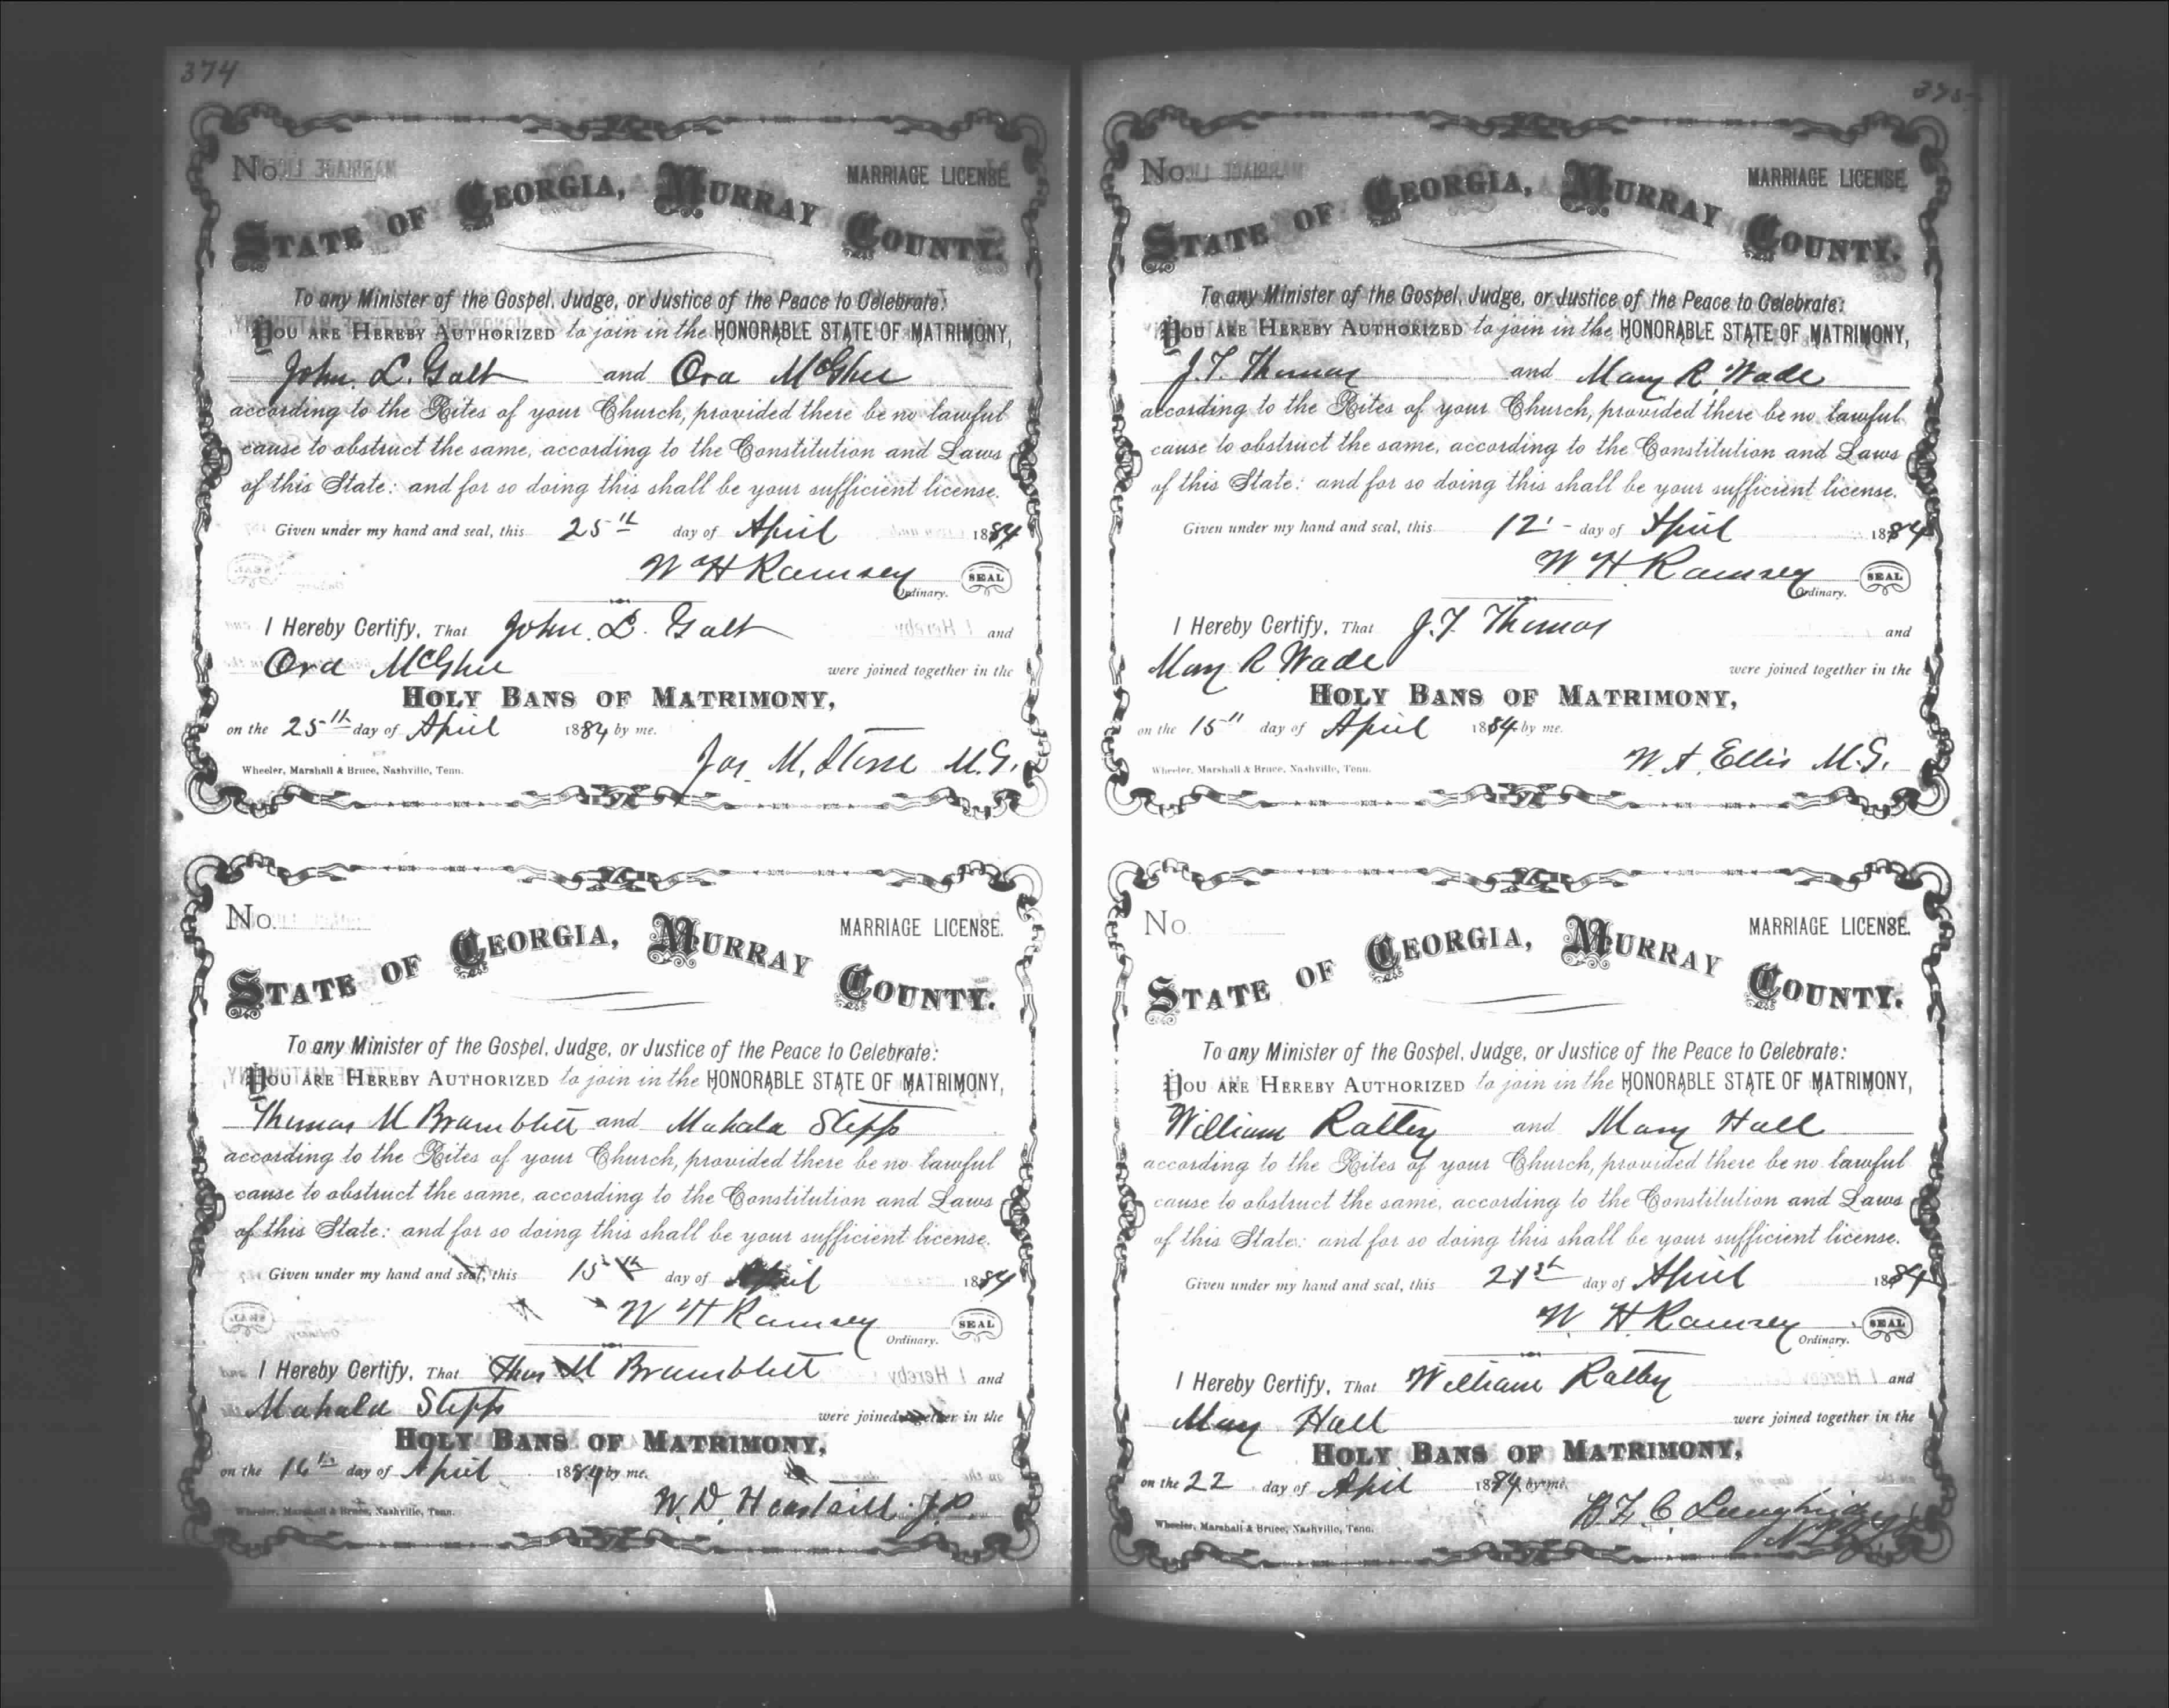 374
No.
MARRIAGE LICENSE.
STATE OF GEORGIA, MURRAY COUNTY.
To any Minister of the Gospel, Judge, or Justice of the Peace to Celebrate:
YOU ARE HEREBY AUTHORIZED to join in the HONORABLE STATE OF MATRIMONY,
John. L. Galt and Ora McGhee
according to the Rites of your Church, provided there be no lawful
cause to obstruct the same, according to the Constitution and Laws
of this State: and for so doing this shall be your sufficient license.
Given under my hand and seal, this 25th day of April 1884
W H Ramsey SEAL
Ordinary.
I Hereby Certify, That John. L. Galt and
Ora McGhee were joined together in the
HOLY BANS OF MATRIMONY,
on the 25th day of April 1884 by me.
Jas. M. M.G.
Wheeler, Marshall & Bruce, Nashville, Tenn.
No.
MARRIAGE LICENSE.
STATE OF GEORGIA, MURRAY COUNTY.
To any Minister of the Gospel, Judge, or Justice of the Peace to Celebrate:
YOU ARE HEREBY AUTHORIZED to join in the HONORABLE STATE OF MATRIMONY,
Thomas M Bramblett and Mahala Stepp
according to the Rites of your Church, provided there be no lawful
cause to obstruct the same, according to the Constitution and Laws
of this State: and for so doing this shall be your sufficient license.
Given under my hand and seal, this 15th day of April 1884
W H Ramsey SEAL
Ordinary.
I Hereby Certify, That Thos M Bramblett and
Mahala Stepp were joined together in the
HOLY BANS OF MATRIMONY,
on the 16th day of April 1884 by me.
W. D. J.P.
Wheeler, Marshall & Bruce, Nashville, Tenn.
375
No.
MARRIAGE LICENSE.
STATE OF GEORGIA, MURRAY COUNTY.
To any Minister of the Gospel, Judge, or Justice of the Peace to Celebrate:
YOU ARE HEREBY AUTHORIZED to join in the HONORABLE STATE OF MATRIMONY,
J. T. Thomas and Mary R. Wade
according to the Rites of your Church, provided there be no lawful
cause to obstruct the same, according to the Constitution and Laws
of this State: and for so doing this shall be your sufficient license.
Given under my hand and seal, this 12 day of April 1884
W H Ramsey SEAL
Ordinary.
I Hereby Certify, That J. T. Thomas and
Mary R Wade were joined together in the
HOLY BANS OF MATRIMONY,
on the 15" day of April 1884 by me.
W. A. Ellis M.G.
Wheeler, Marshall & Bruce, Nashville, Tenn.
No.
MARRIAGE LICENSE.
STATE OF GEORGIA, MURRAY COUNTY.
To any Minister of the Gospel, Judge, or Justice of the Peace to Celebrate:
YOU ARE HEREBY AUTHORIZED to join in the HONORABLE STATE OF MATRIMONY,
William Ratley and Mary Hall
according to the Rites of your Church, provided there be no lawful
cause to obstruct the same, according to the Constitution and Laws
of this State: and for so doing this shall be your sufficient license.
Given under my hand and seal, this 21st day of April 1884
W. H. Ramsey SEAL
Ordinary.
I Hereby Certify, That William Ratley and
Mary Hall were joined together in the
HOLY BANS OF MATRIMONY,
on the 22 day of April 1884 by me.
C Loughridge
Wheeler, Marshall & Bruce, Nashville, Tenn.